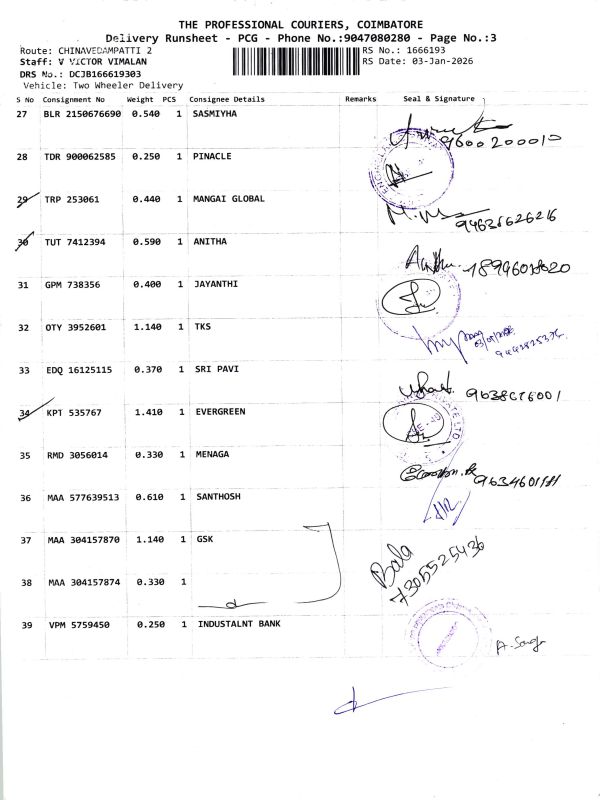 THE PROFESSIONAL COURIERS, COIMBATORE
Delivery Runsheet - PCG - Phone No.:9047080280 - Page No.:3
Route: CHINAVEDAMPATTI 2 RS No.: 1666193
Staff: V VICTOR VIMALAN RS Date: 03-Jan-2026
DRS No.: DCJB166619303
Vehicle: Two Wheeler Delivery
S No Consignment No Weight PCS Consignee Details Remarks Seal & Signature
27 BLR 2150676690 0.540 1 SASMIYHA
9600200010
28 TDR 900062585 0.250 1 PINACLE
29 TRP 253061 0.440 1 MANGAI GLOBAL
30 TUT 7412394 0.590 1 ANITHA
31 GPM 738356 0.400 1 JAYANTHI
32 OTY 3952601 1.140 1 TKS
33 EDQ 16125115 0.370 1 SRI PAVI
34 KPT 535767 1.410 1 EVERGREEN
35 RMD 3056014 0.330 1 MENAGA
36 MAA 577639513 0.610 1 SANTHOSH
37 MAA 304157870 1.140 1 GSK
Bala
7305525436
38 MAA 304157874 0.330 1
39 VPM 5759450 0.250 1 INDUSTALNT BANK